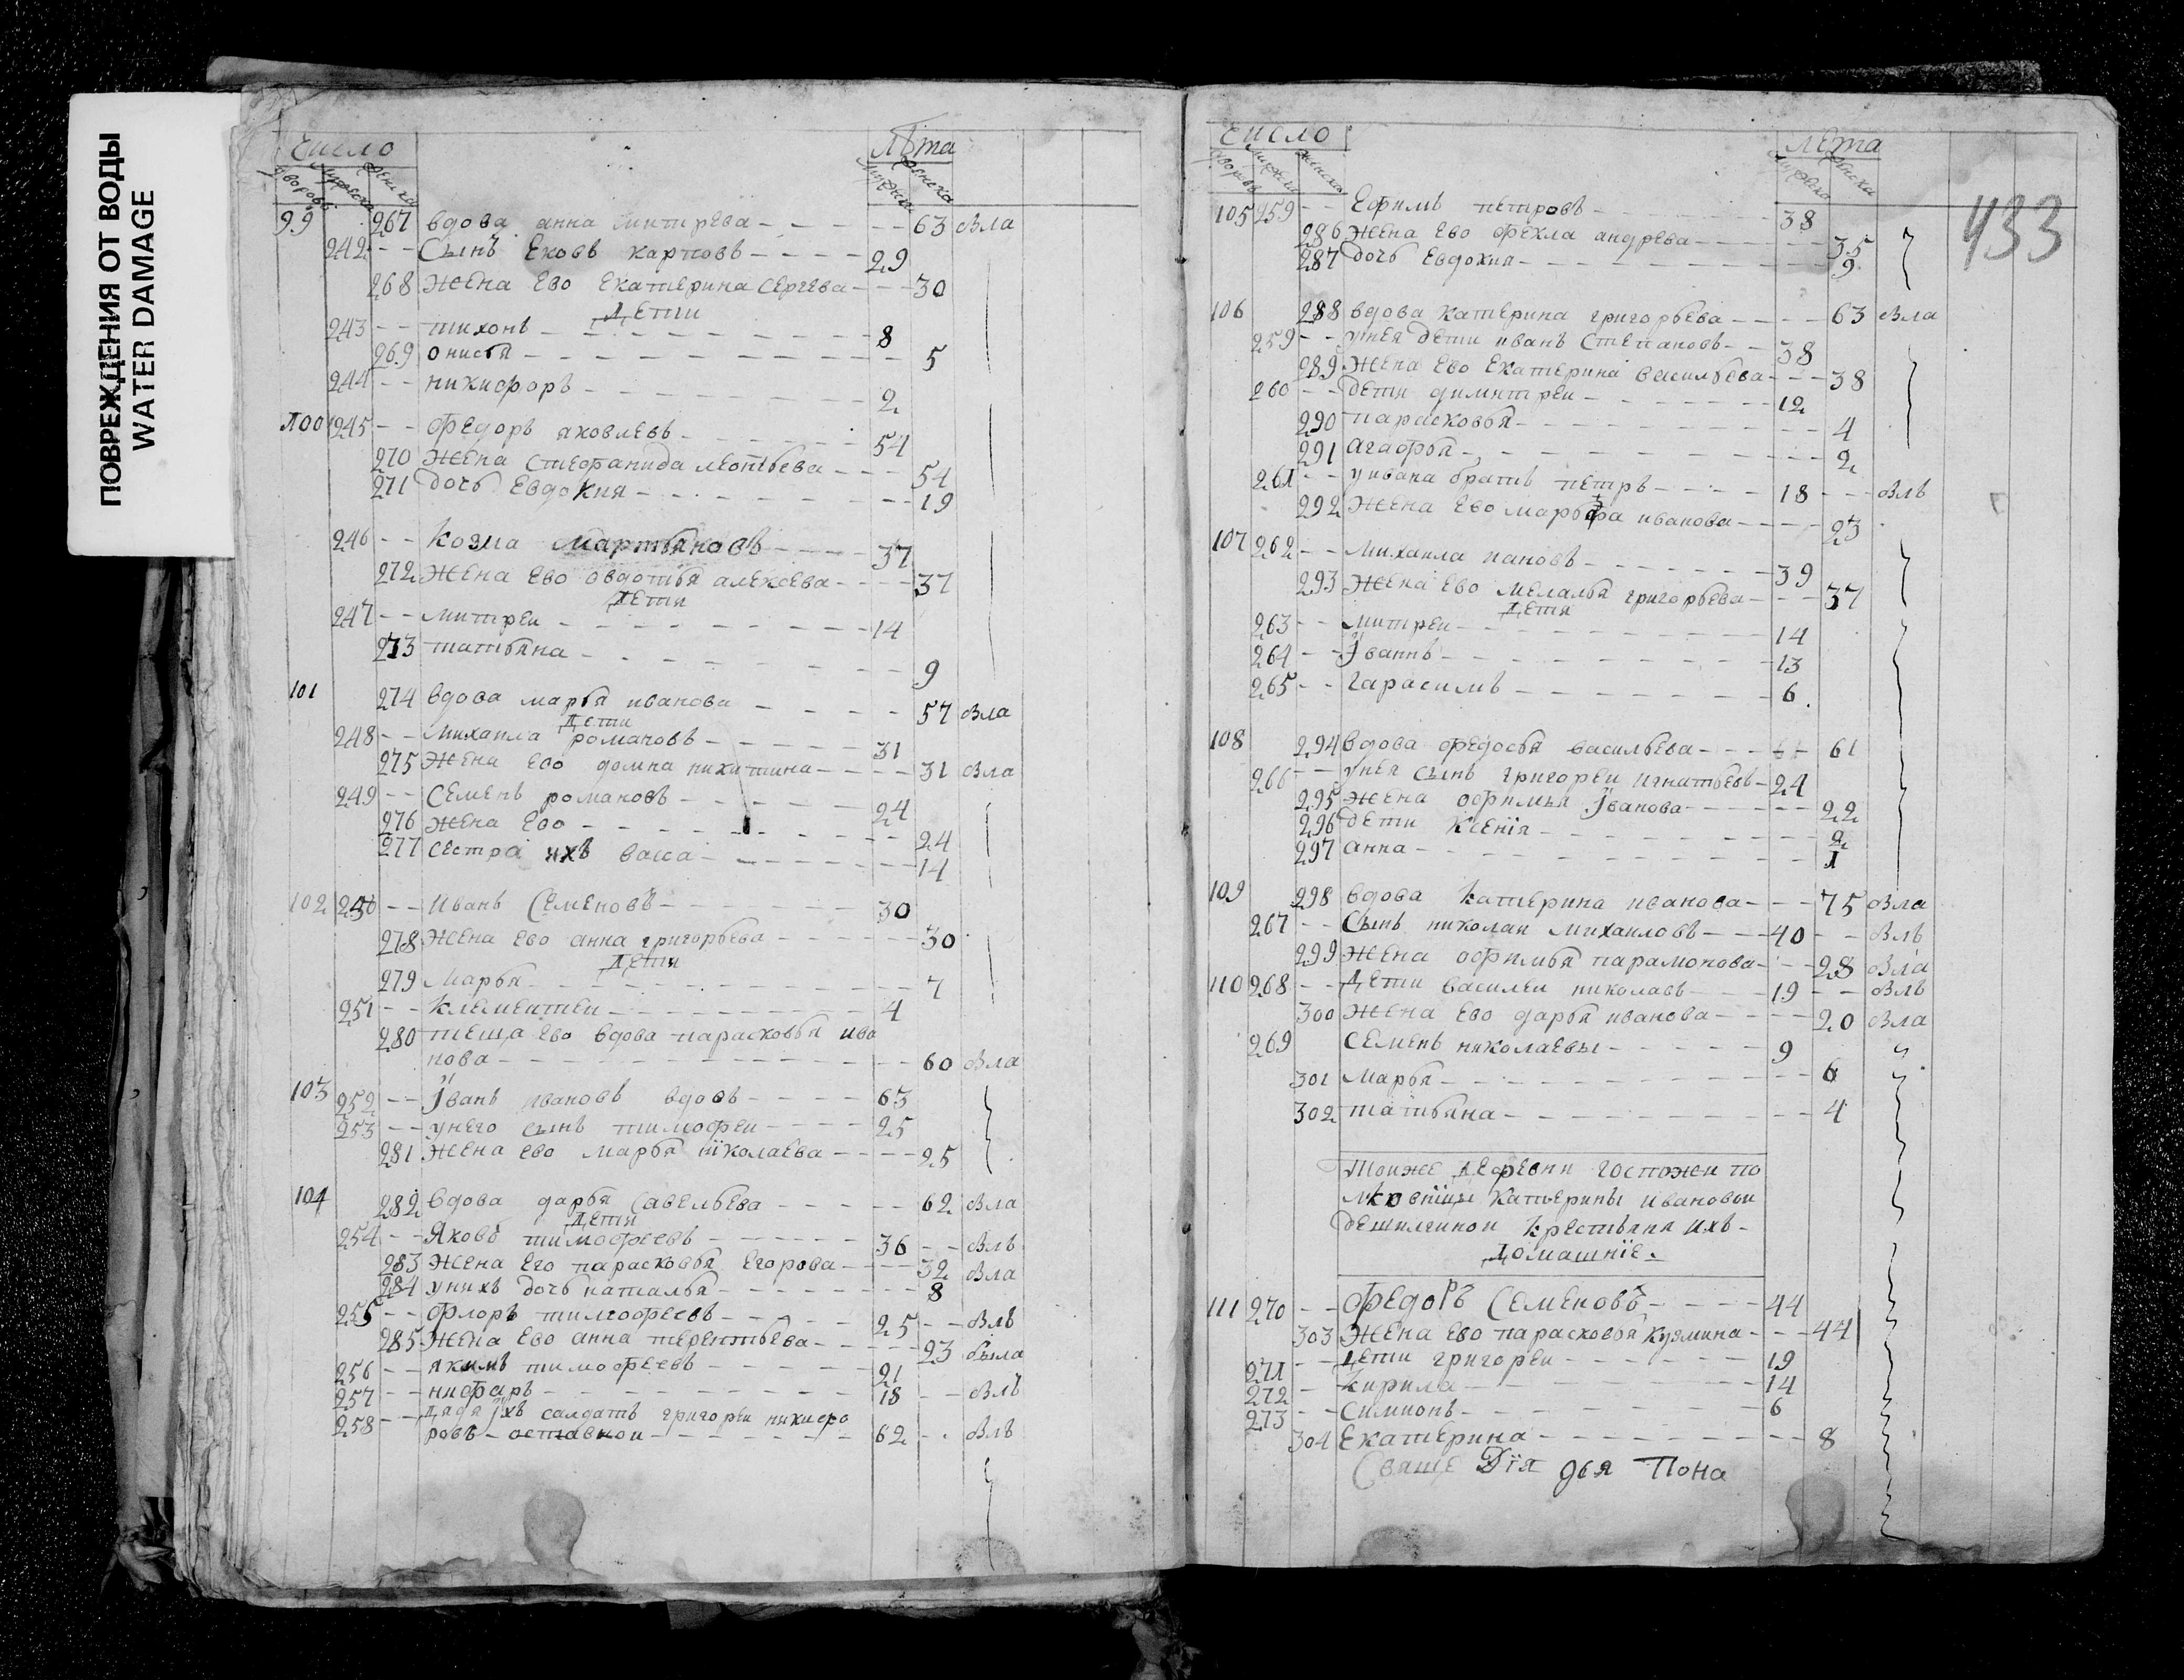 ПОВРЕЖДЕНИЯ ОТ ВОДЫ
WATER DAMAGE
Число
Лѣта
дворовъ мужеска женска
мужеска женска
99 267 вдова анна митрева 63 вла
242 Сынъ Еховъ карповъ 29
268 жена ево Екатерина Сергева 30
Дети
243 тихонъ 8
269 онисья 5
244 никифоръ 2
100 245 Федоръ яковлевъ 54
270 жена стефанида леонтьева 54
271 дочь Евдокия 19
246 козма мартьяновъ 37
272 жена ево овдотья алексева 37
Дети
247 митреи 14
273 татьяна 9
101 274 вдова марья иванова 57 вла
Дети
248 михаила романовъ 31
275 жена ево домна никитина 31 вла
249 Семенъ романовъ 24
276 жена ево 24
277 сестра ихъ васса 14
102 250 Иванъ Семеновъ 30
278 жена ево анна григорьева 30
Дети
279 Марья 7
251 клементеи 4
280 теща ево вдова парасковья ива
нова 60 вла
103 252 Іванъ ивановъ вдовъ 63
253 унего сынъ тимофеи 25
281 жена ево марья нїколаева 25
104 282 вдова дарья Савельева 62 вла
Дети
254 Яковъ тимофеевъ 36 влъ
283 жена его парасковья Егорова 32 вла
284 унихъ дочь наталья 8
255 Флоръ тимофеевъ 25 влъ
285 жена ево анна терентьева 23 была
256 якимъ тимофеевъ 21
257 нифаръ 18 влъ
258 дядя Іхъ салдатъ григореи никифо
ровъ оставнои 62 влъ
Число
Лѣта
дворовъ мужеска женска
мужеска женска
433
105 259 Ефимъ петровъ 38
286 жена ево фекла андрева 35
287 дочь Евдокия 9
106 288 вдова катерина григорьева 63 вла
259 унея дети иванъ Степановъ 38
289 жена ево Екатерина васильева 38
260 дети димитреи 12
290 парасковья 4
291 агафья 2
261 уивана братъ петръ 18 влъ
292 жена ево марьфа иванова 23
107 262 михаила пановъ 39
293 жена ево мелалья григорьева 37
Дети
263 митреи 14
264 Іваннъ 13
265 гарасимъ 6
108 294 вдова федосья васильева 61
266 унея сынъ григореи игнатьевъ 24
295 жена офимья Іванова 22
296 дети Ксенїя 2
297 анна 1
109 298 вдова Катерина иванова 75 вла
267 Сынъ николаи михаиловъ 40 влъ
299 жена офимья парамонова 28 вла
110 268 Дети василеи николаевъ 19 влъ
300 жена ево дарья иванова 20 вла
269 Семенъ николаевы 9
301 марья 6
302 татьяна 4
Тоиже деревни госпожеи по
мковницы Катерины ивановои
крестьяня ихъ
Домашнїе.
111 270 Федоръ Семеновъ 44
303 жена ево парасковья Кузмина 44
271 Дети григореи 19
272 Кирила 14
273 Симионъ 6
304 Екатерина 8
Свяще Дїя